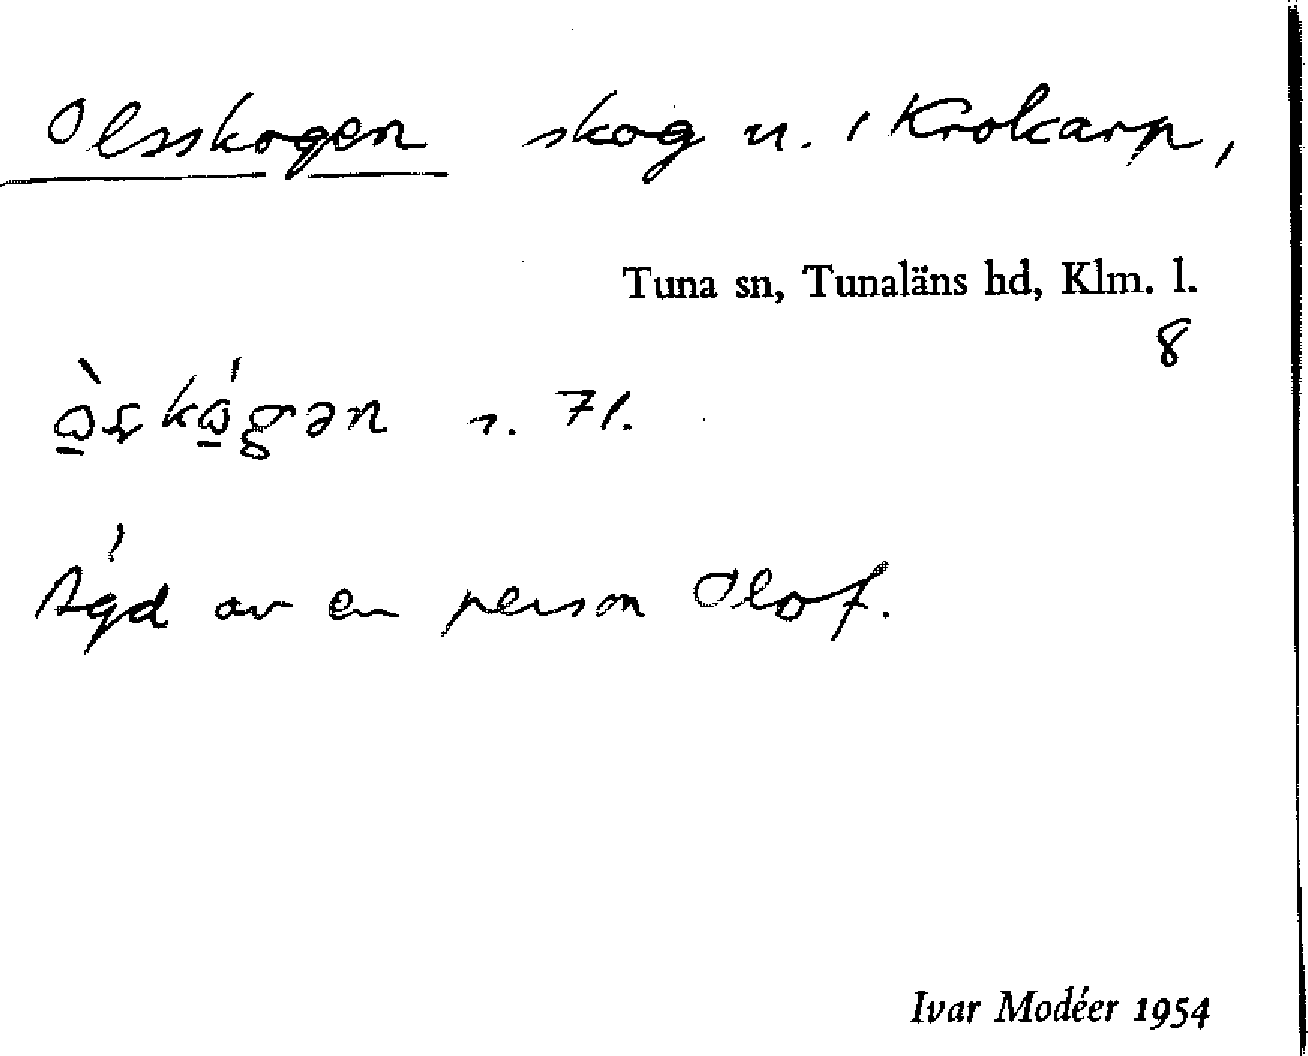 Olsskogen skog n. i Krokarp,
Tuna sn, Tunaläns hd, Klm. l.
8
71.
Ägd av en person Olof.
Ivar Modéer 1954